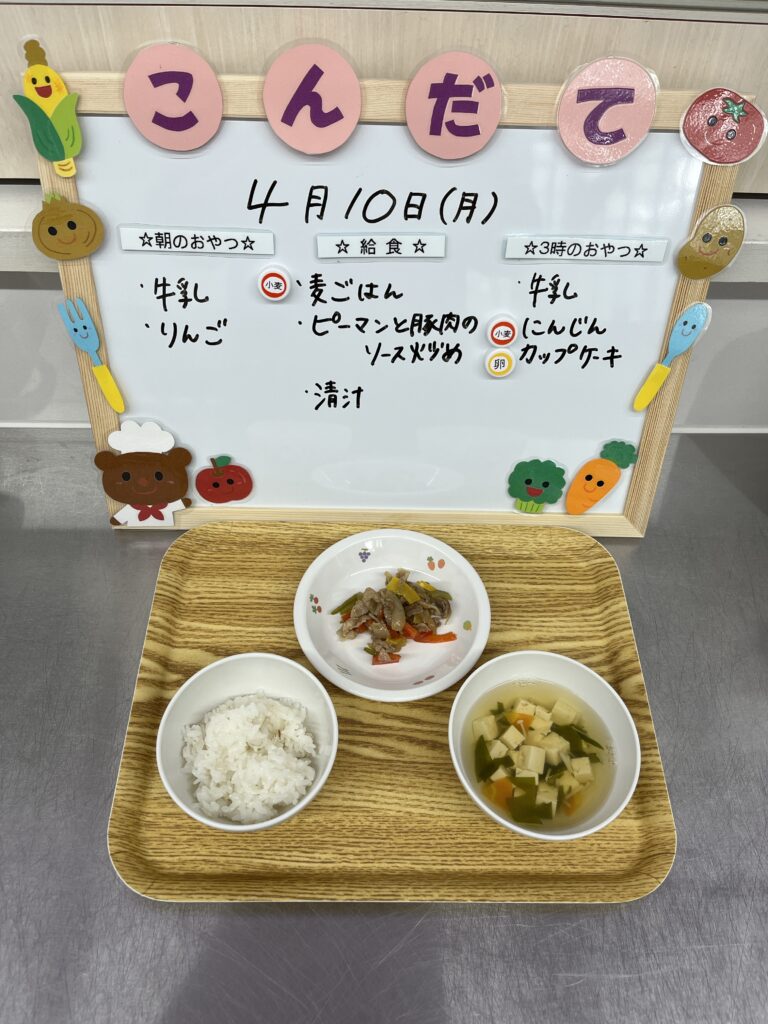 こんだて
4月10日(月)
☆朝のおやつ☆
・牛乳
・りんご
☆ 給 食 ☆
小麦 ・麦ごはん
・ピーマンと豚肉の
ソース炒め
・清汁
☆3時のおやつ☆
・牛乳
小麦 にんじん
卵 カップケーキ